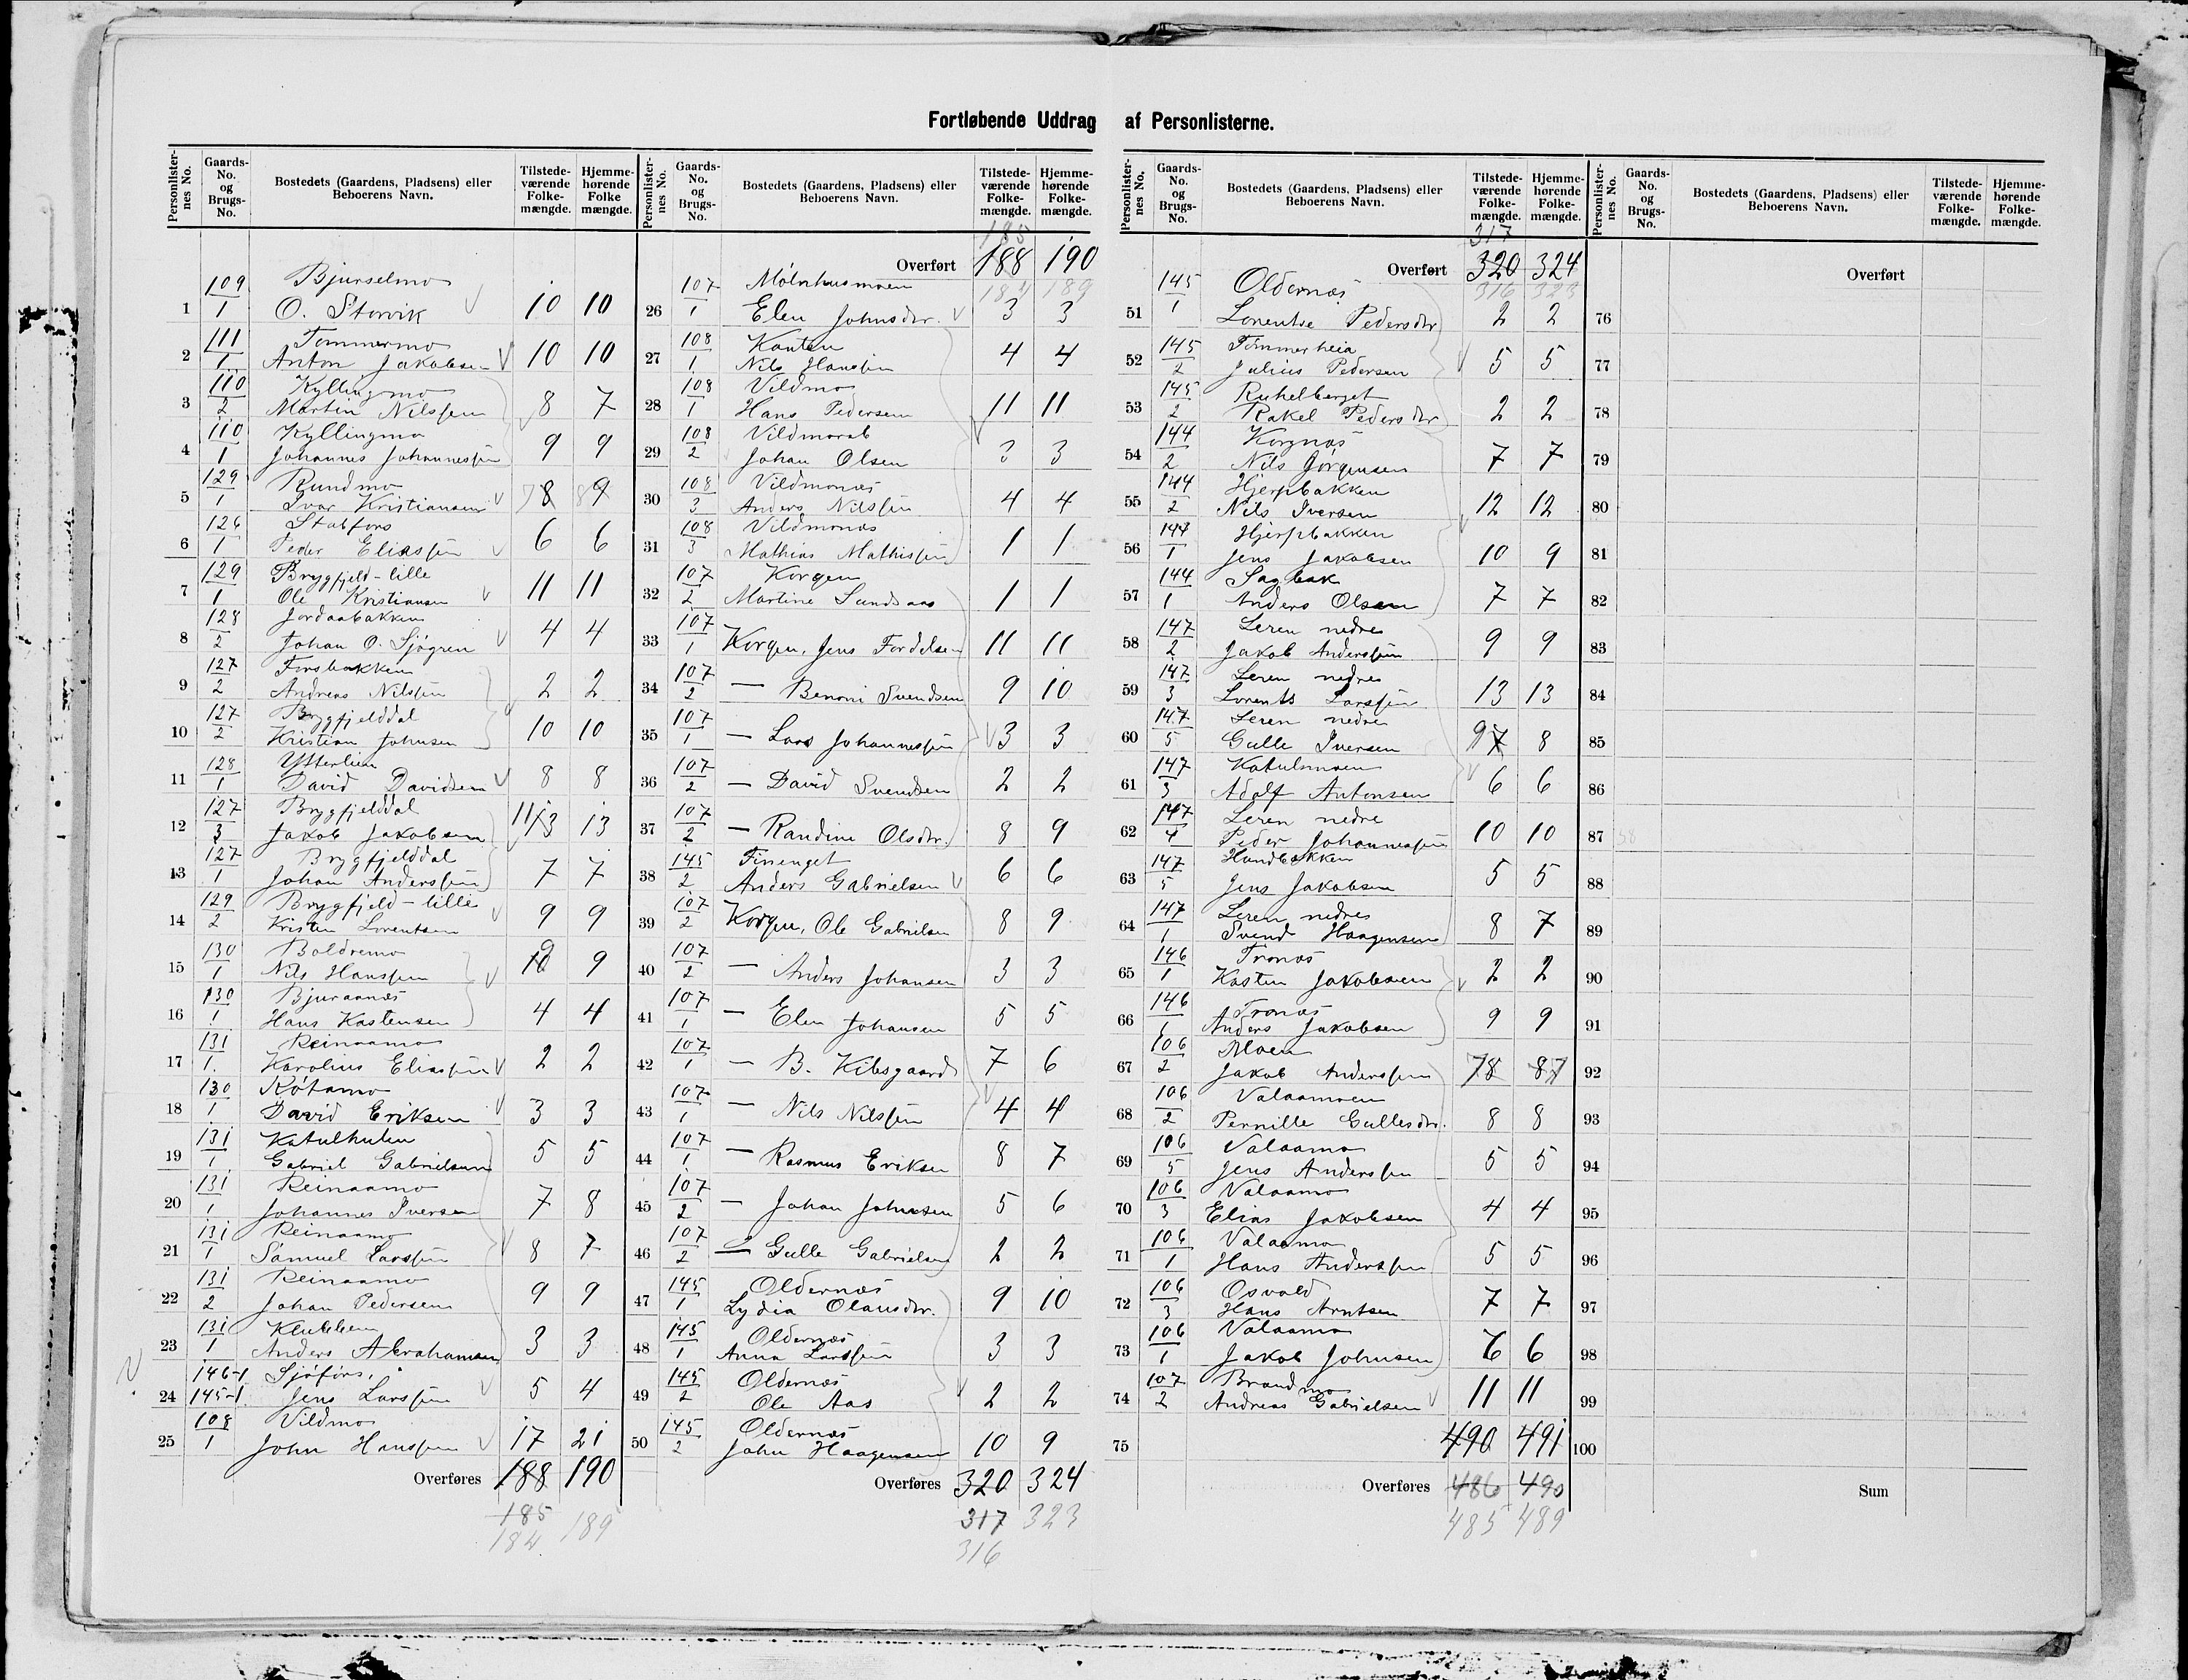 Fortløbende Uddrag af Personlisterne.
Personlister-nes No. Gaards-No. og Brugs-No. Bostedets (Gaardens, Pladsens) eller Beboerens Navn. Tilstede-værende Folke-mængde. Hjemme-hørende Folke mængde.
109 Bjurselmo
1 1 O. Storvik 10 10
111 Tømmermo
2 1 Anton Jakobsen 10 10
110 Kyllingmo
3 2 Martin Nilssen 8 7
110 Kyllingmo
4 1 Johannes Johannessen 9 9
129 Rundmo
5 1 Ivar Kristiansen 78 89
126 Stabfors
6 1 Peder Eliassen 6 6
129 Brygfjeld-lille
7 1 Ole Kristiansen 11 11
128 Jordaabakken
8 2 Johan O. Sjøgren 4 4
127 Forsbakken
9 2 Andreas Nilssen 2 2
127 Brygfjelddal
10 2 Kristian Johnsen 10 10
128 Ytterlien
11 1 David Davidsen 8 8
127 Brygfjelddal
12 3 Jakob Jakobsen 11 13 13
127 Brygfjelddal
13 1 Johan Anderssen 7 7
129 Brygfjeld-lille
14 2 Kristen Lorentsen 9 9
130 Boldremo
15 1 Nils Hanssen 10 9
130 Bjuraanæs
16 1 Hans Kastensen 4 4
131 Reinaamo
17 1. Karolius Eliassen 2 2
130 Køtamo
18 1 David Eriksen 3 3
131 Katulhulen
19 1 Gabriel Gabrielsen 5 5
131 Reinaamo
20 1 Johannes Iversen 7 8
131 Reinaamo
21 1 Samuel Larssen 8 7
131 Reinaamo
22 2 Johan Pedersen 9 9
131 Klubben
23 1 Anders Abrahamsen 3 3
146-1 Sjøfors.
24 145-1. Jens Larssen 5 4
108 Vildmo
25 1 John Hanssen 17 21
Overføres 188 190
185
184 189
Personlister-nes No. Gaards-No. og Brugs-No. Bostedets (Gaardens, Pladsens) eller Beboerens Navn. Tilstede-værende Folke-mængde. Hjemme-hørende Folke-mængde.
185
Overført 188 190
184 189
107 Mølnhusmoen
26 1 Elen Johnsdtr. 3 3
108 Kanten
27 1 Nils Hanssen 4 4
108 Vildmo
28 1 Hans Pedersen 11 11
108 Vildmorab
29 2 Johan Olsen 3 3
108 Vildmonæs
30 3 Anders Nilssen 4 4
108 Vildmonæs
31 3 Mathias Mathissen 1 1
107 Korgen
32 2 Martine Sundsaas 1 1
107
33 1 Korgen, Jens Fordelsen 11 11
107
34 2 — Benoni Svendsen 9 10
107
35 1 — Lars Johannessen 3 3
107
36 2 — David Svendsen 2 2
107
37 2 — Randine Olsdtr. 8 9
145 Finenget
38 2 Anders Gabrielsen 6 6
107
39 2 Korgen, Ole Gabrielsen 8 9
107
40 2 — Anders Johansen 3 3
107
41 1 — Elen Johansen 5 5
107
42 1 — B. Kibsgaard 7 6
107
43 1 — Nils Nilssen 4 4
107
44 1 — Rasmus Eriksen 8 7
107
45 2 — Johan Johnsen 5 6
107
46 2 — Gulle Gabrielsen 2 2
145 Oldernæs
47 1 Lydia Olausdtr. 9 10
145 Oldernæs
48 1 Anna Larssen 3 3
145 Oldernæs
49 2 Ole Aas 2 2
145 Oldernæs
50 2 John Haagensen 10 9
Overføres 320 324
317 323
316
Personlister-nes No. Gaards-No. og Brugs-No. Bostedets (Gaardens, Pladsens) eller Beboerens Navn. Tilstede-værende Folke-mængde. Hjemme-hørende Folke-mængde.
317
Overført 320 324
316 323
145 Oldernæs
51 1 Lorentse Pedersdtr 2 2
145 Tømmerheia
52 2 Julius Pedersen 5 5
145 Ruhelberget
53 2 Rakel Pedersdtr 2 2
144 Korgnæs
54 2 Nils Jørgensen 7 7
144 Hjerpbakken
55 2 Nils Iversen 12 12
144 Hjerpbakken
56 1 Jens Jakobsen 10 9
144 Sagbak
57 1 Anders Olsen 7 7
147 Leren nedre
58 2 Jakob Anderssen 9 9
147 Leren nedre
59 3 Lorents Larssen 13 13
147 Leren nedre
60 5 Gulle Iversen 97 8
147 Katulsmoen
61 3 Adolf Antonsen 6 6
147 Leren nedre
62 4 Peder Johannessen 10 10
147 Hundbakken
63 5 Jens Jakobsen 5 5
147 Leren nedre
64 1 Svend Haagensen 8 7
146 Tronæs
65 1 Kasten Jakobsen 2 2
146 Tronæs
66 1 Anders Jakobsen 9 9
106 Moen
67 2 Jakob Anderssen 78 87
106 Valaamoen
68 2 Pernille Gullesdtr. 8 8
106 Valaamo
69 5 Jens Anderssen 5 5
106 Valaamo
70 3 Elias Jakobsen 4 4
106 Valaamo
71 1 Hans Anderssen 5 5
106 Osvald
72 3 Hans Arntsen 7 7
106 Valaamo
73 1 Jakob Johnsen 6 6
107 Brandmo
74 2 Andreas Gabrielsen 11 11
75 490 491
Overføres 486 490
485 489
Personlister-nes No. Gaards-No. og Brugs-No. Bostedets (Gaardens, Pladsens) eller Beboerens Navn. Tilstede-værende Folke-mængde. Hjemme-hørende Folke-mængde.
Overført
76
77
78
79
80
81
82
83
84
85
86
87
88
89
90
91
92
93
94
95
96
97
98
99
100
Sum